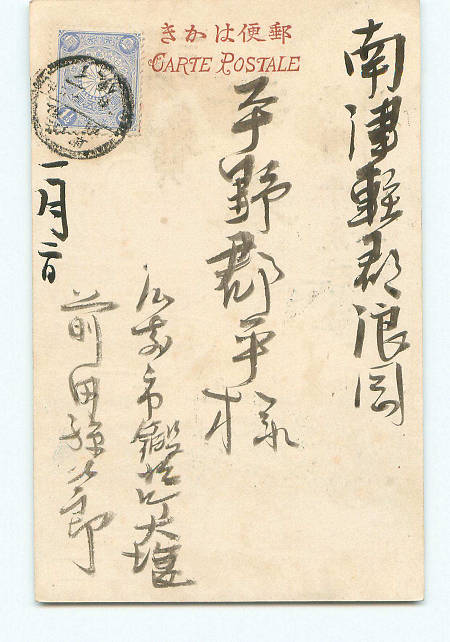 きかは便郵
CARTE POSTALE
南津軽郡浪岡
平野郡平様
一月二日
弘前市鍛冶町大堰
前田
郎